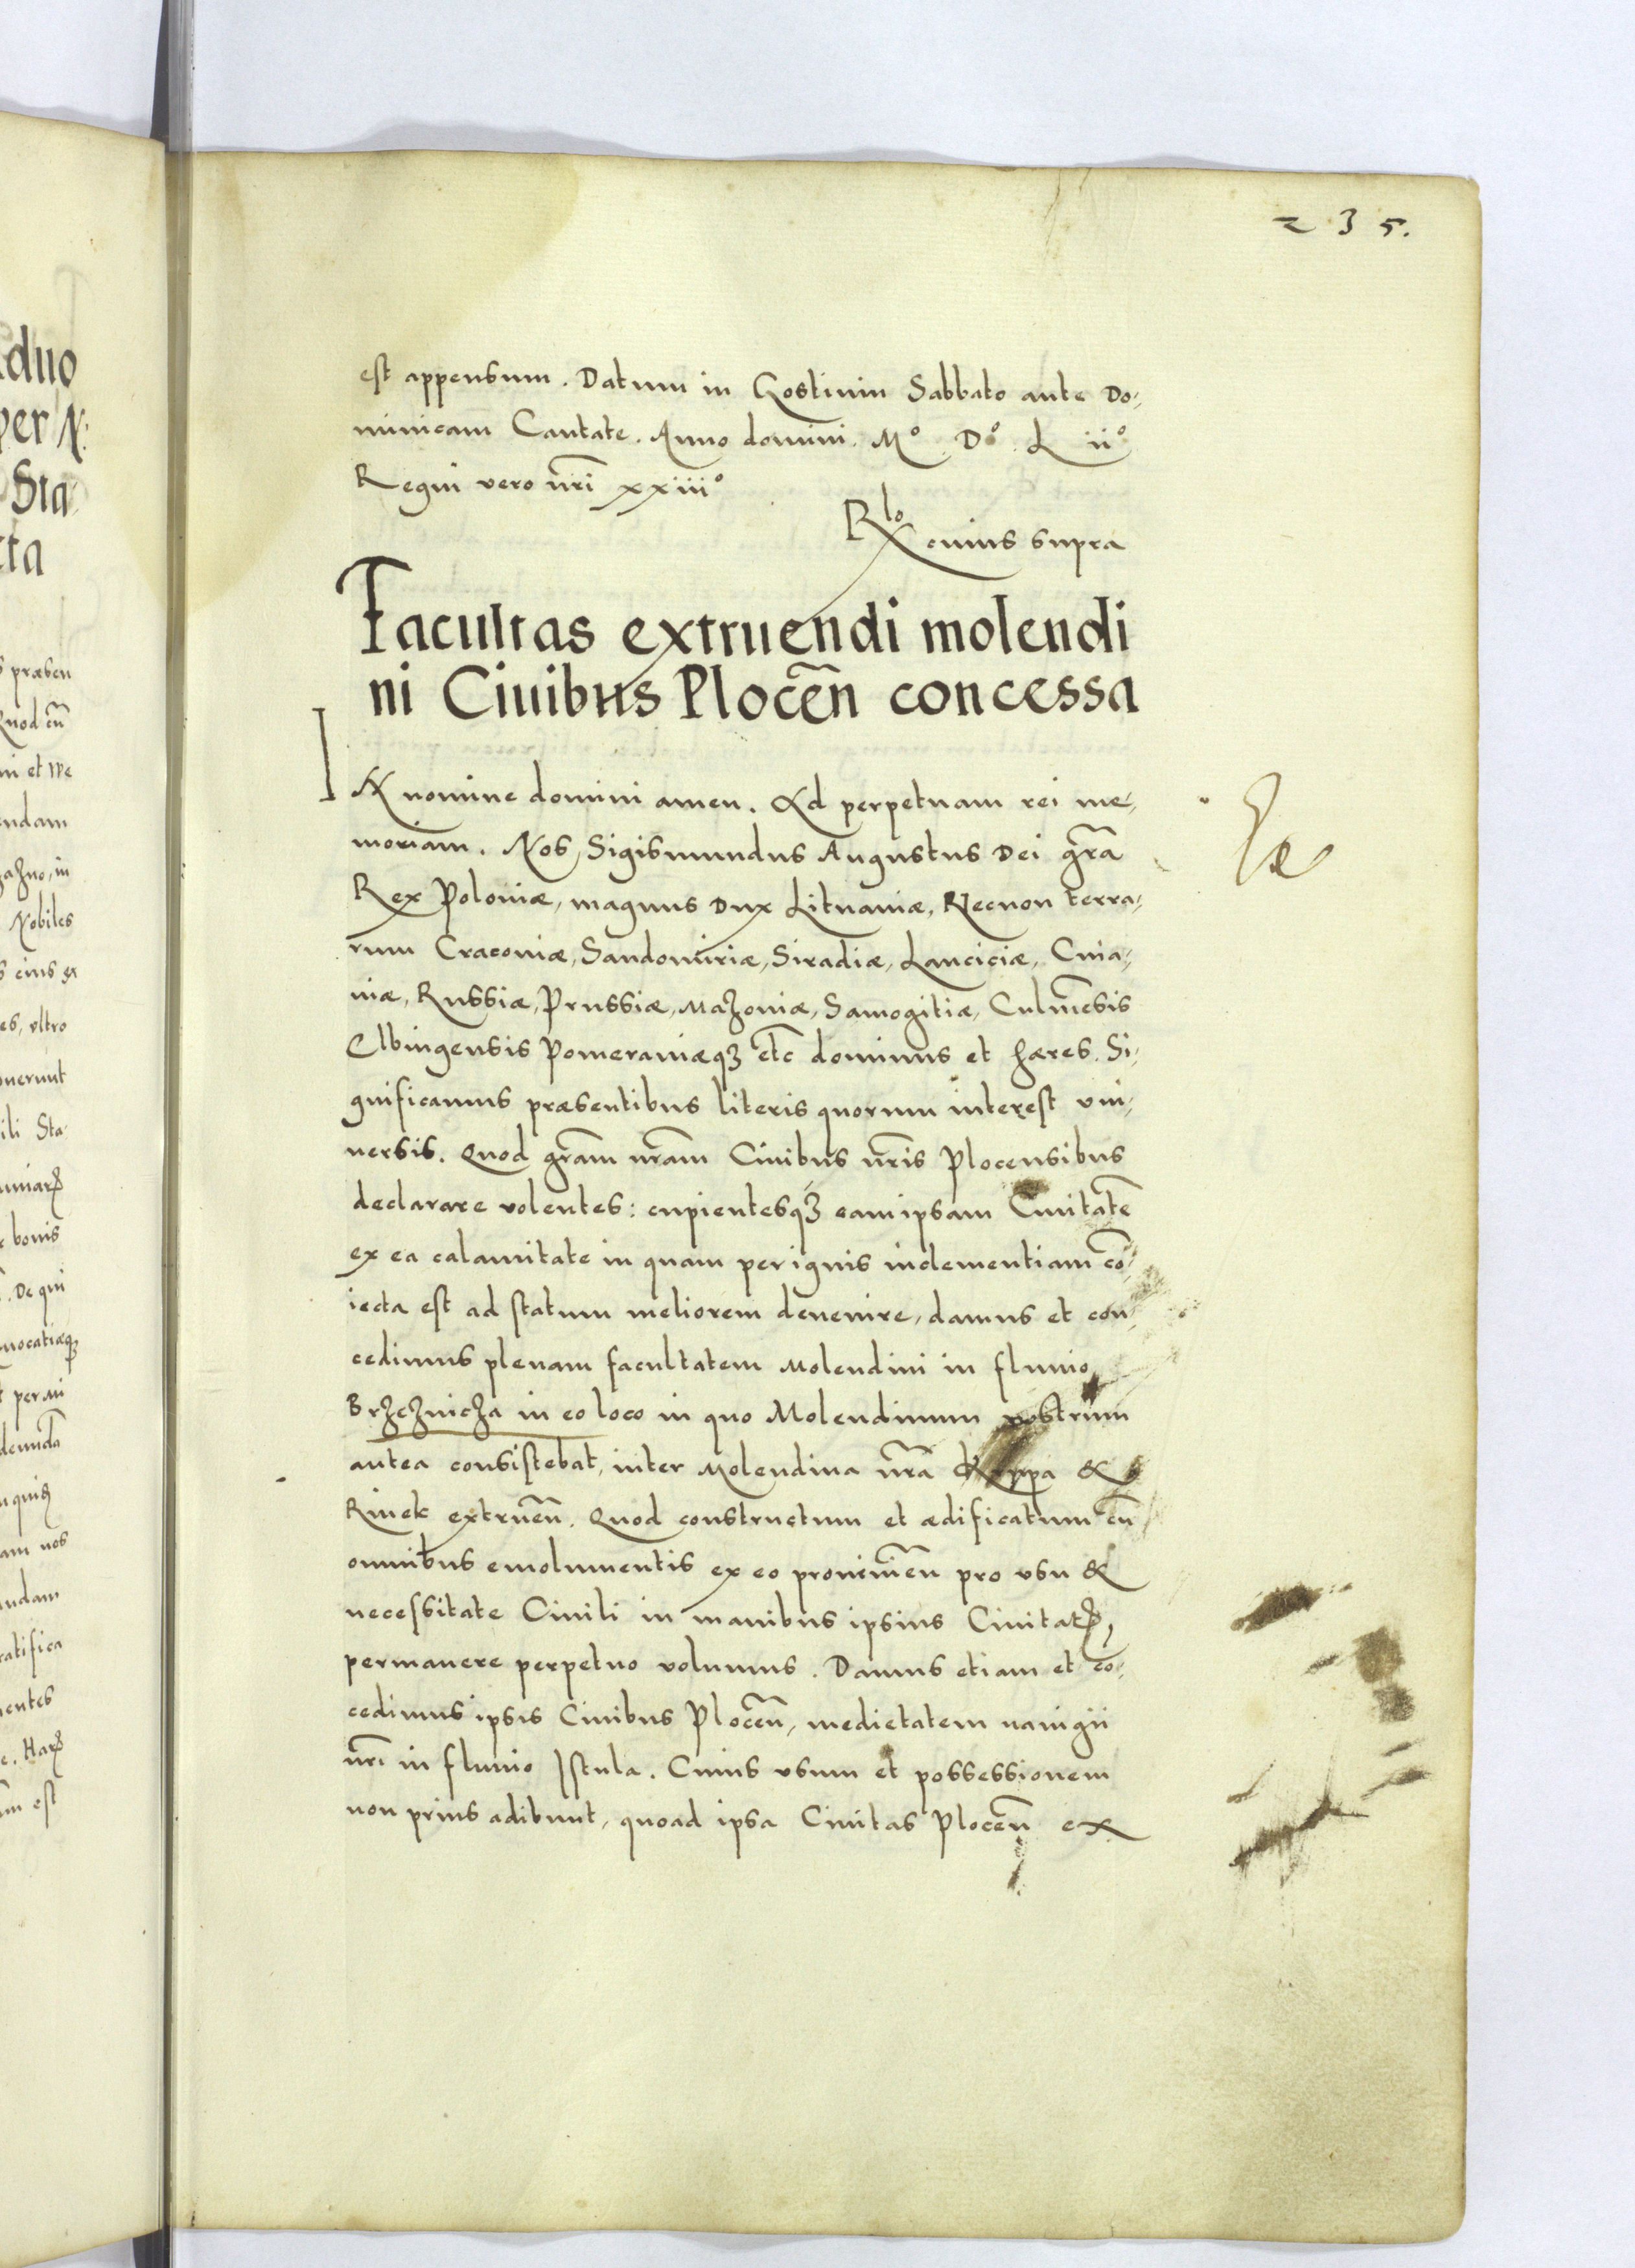 235.
est appensum. Datum in Gostinin Sabbato ante Do-
minicam Cantate. Anno domini. M° D° L ii°
Regni vero nrĩ xxiii°
Rlo cuius supra
Facultas extruendi molendi
ni Ciuibus Plocen̄ concessa
IN nomine domini amen. Ad perpetuam rei me-
moriam. Nos Sigismundus Augustus Dei gr̃a
Rex Poloniæ, magnus Dux Lituaniæ, Necnon terra-
rum Cracouiæ, Sandomiriæ, Siradiæ, Lanciciæ, Cuia-
uiæ, Russiæ, Prussiæ, Mazouiæ, Samogitiæ, Culmen̄sis
Elbingensis Pomeraniæqꝫ etc̄ dominus et hæres. Si-
gnificamus præsentibus literis quorum interest vni-
uersis. Quod gr̃am nr̃am Ciuibus nr̃is Plocensibus
declarare volentes: cupientesqꝫ eam ipsam Ciuitatē
ex ea calamitate in quam per ignis inclementiam cō-
iecta est ad statum meliorem deuenire, damus et con-
cedimus plenam facultatem Molendini in fluuio
Brzeznicza in eo loco in quo Molendinum nostrum
antea consistebat, inter Molendina nr̃a &
Rinek extruen̄. Quod constructum et ædificatum cū
omnibus emolumentis ex eo prouenien̄ pro vsu &
necessitate Ciuili in manibus ipsius Ciuitatꝭ,
permanere perpetuo volumus. Damus etiam et cō-
cedimus ipsis Ciuibus Plocen̄, medietatem nauigii
nr̃i in fluuio Istula. Cuius vsum et possessionem
non prius adibunt, quoad ipsa Ciuitas Plocen̄ ex